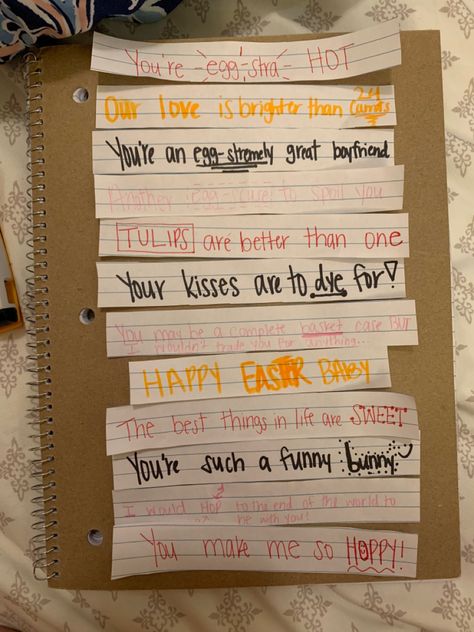 You're egg-stra HOT
Our love is brighter than 24 Carrots
You're an egg-stremely great boyfriend
Another egg-scuse to spoil you
TULIPS are better than one
Your kisses are to dye for!
You may be a complete basket case BUT
I wouldn't trade you for anything...
HAPPY EASTER BABY
The best things in life are SWEET
You're such a funny bunny
I would HOP to the end of the world to
be with you!
You make me so HOPPY!